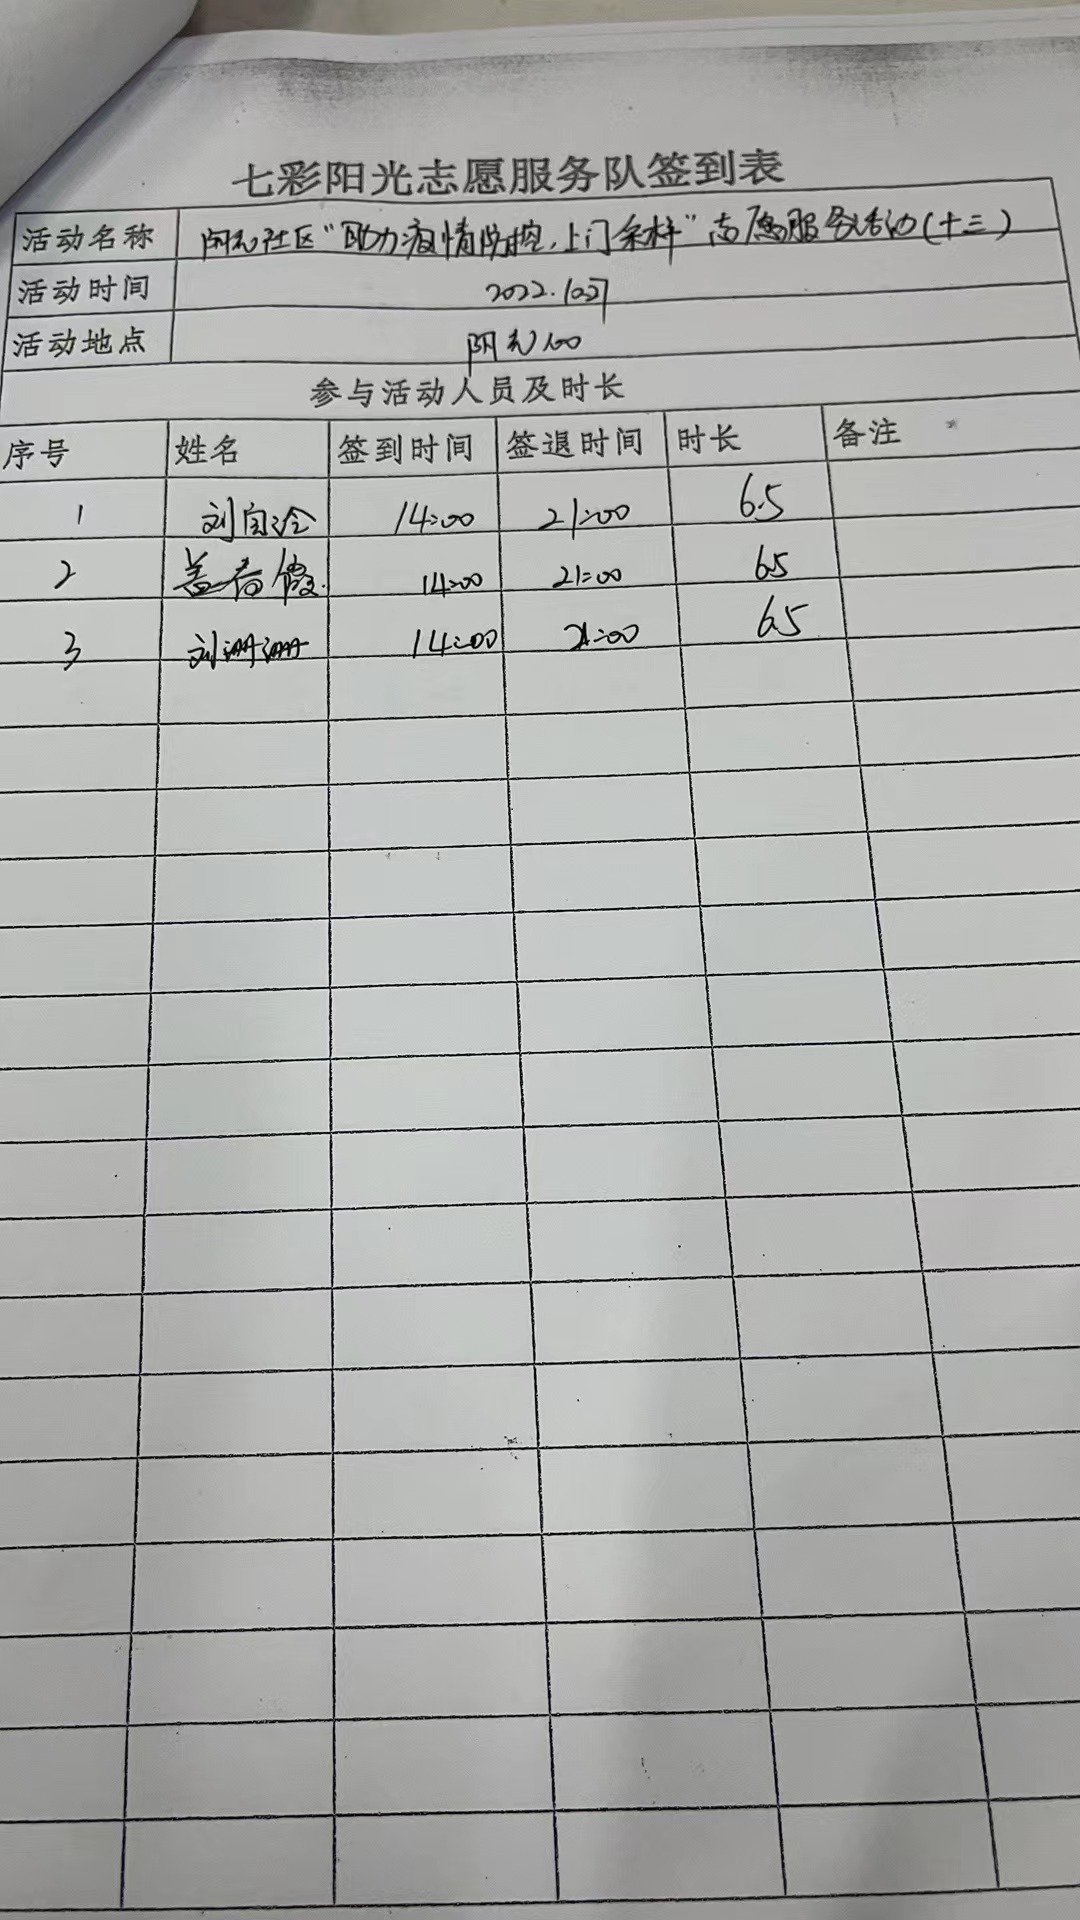 七彩阳光志愿服务队签到表
活动名称 阳光社区“助力疫情防控,上门采样”志愿服务活动(十三)
活动时间 2022.10.27
活动地点 阳光100
参与活动人员及时长
序号 姓名 签到时间 签退时间 时长 备注
1 刘 14:00 21:00 6.5
2 盖春霞 14:00 21:00 6.5
3 刘珊珊 14:00 21:00 6.5